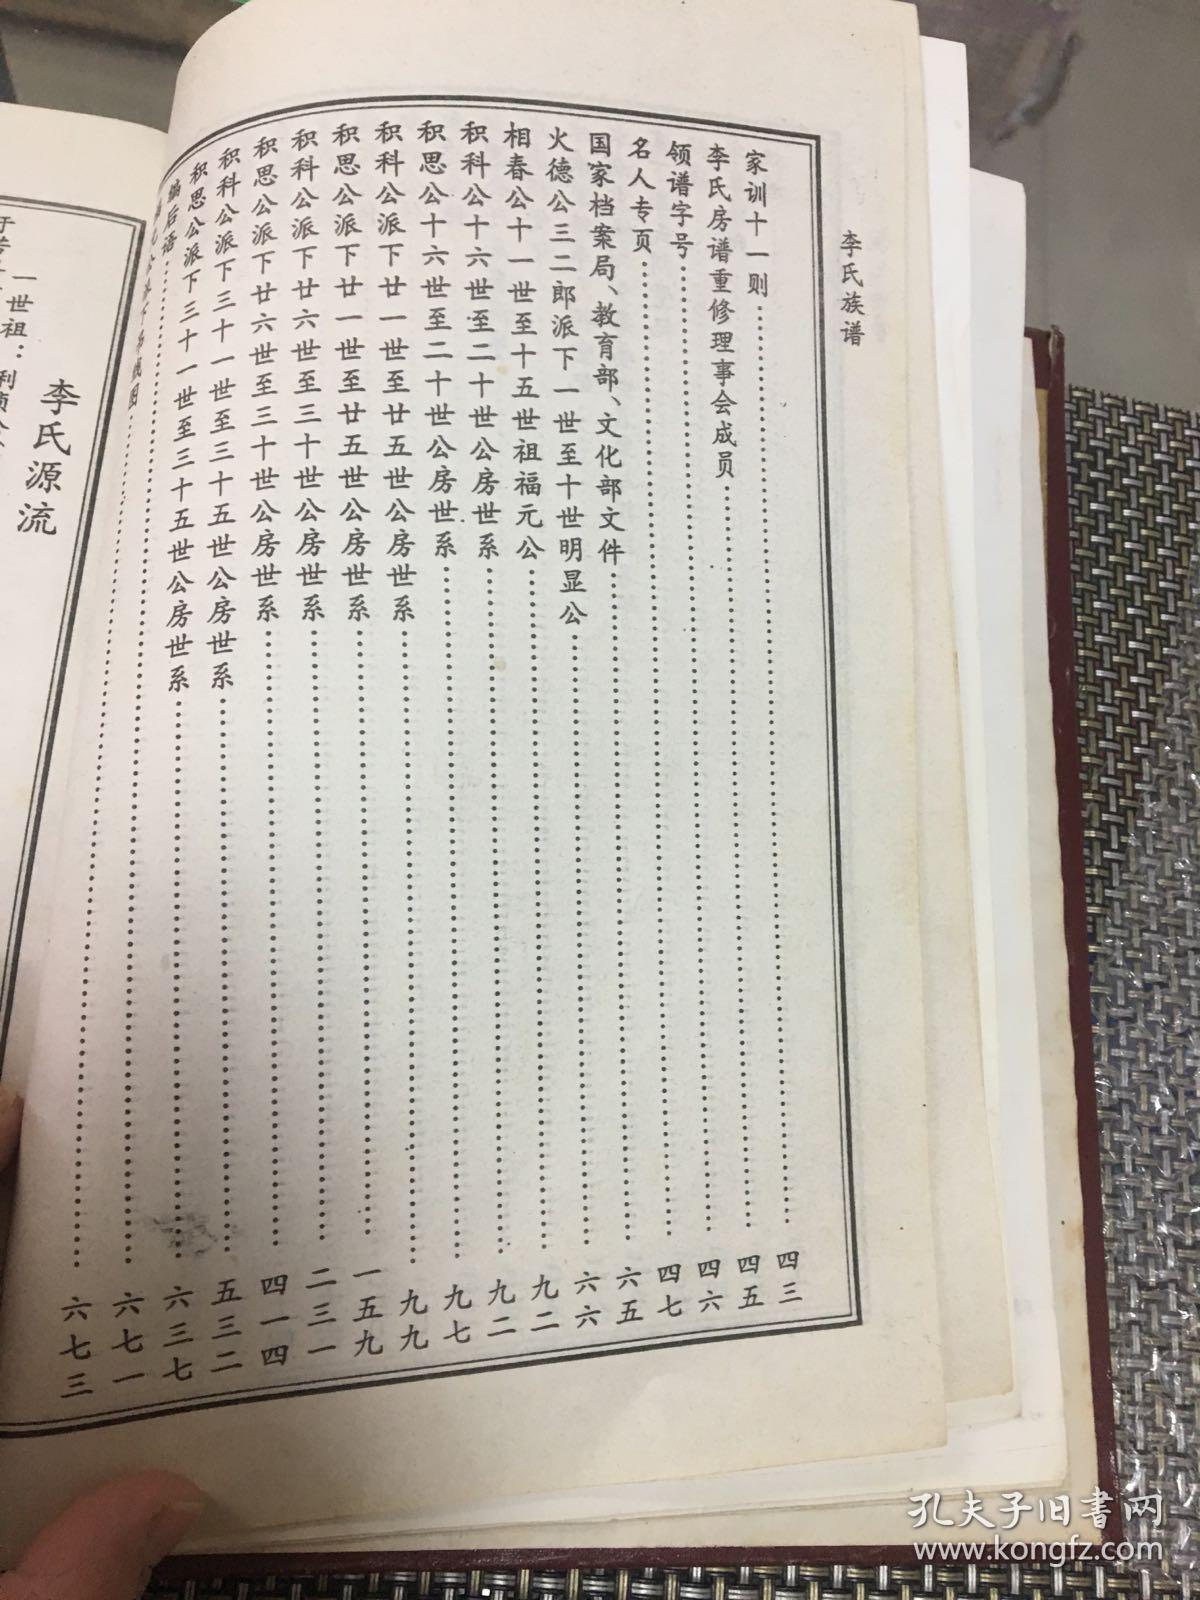 李氏族谱
家训十一则……四三
李氏房谱重修理事会成员……四五
领谱字号……四六
名人专页……四七
国家档案局、教育部、文化部文件……六五
火德公三二郎派下一世至十世明显公……六六
相春公十一世至十五世祖福元公……九二
积科公十六世至二十世公房世系……九二
积思公十六世至二十世公房世系……九七
积科公派下廿一世至廿五世公房世系……九九
积思公派下廿一世至廿五世公房世系……一五九
积科公派下廿六世至三十世公房世系……二三一
积思公派下廿六世至三十世公房世系……四一四
积科公派下三十一世至三十五世公房世系……五三二
积思公派下三十一世至三十五世公房世系……六三七
编后语……六七一
公派下吊线图……六七三
李氏源流
一世祖：利
孔夫子旧書网
www.kongfz.com